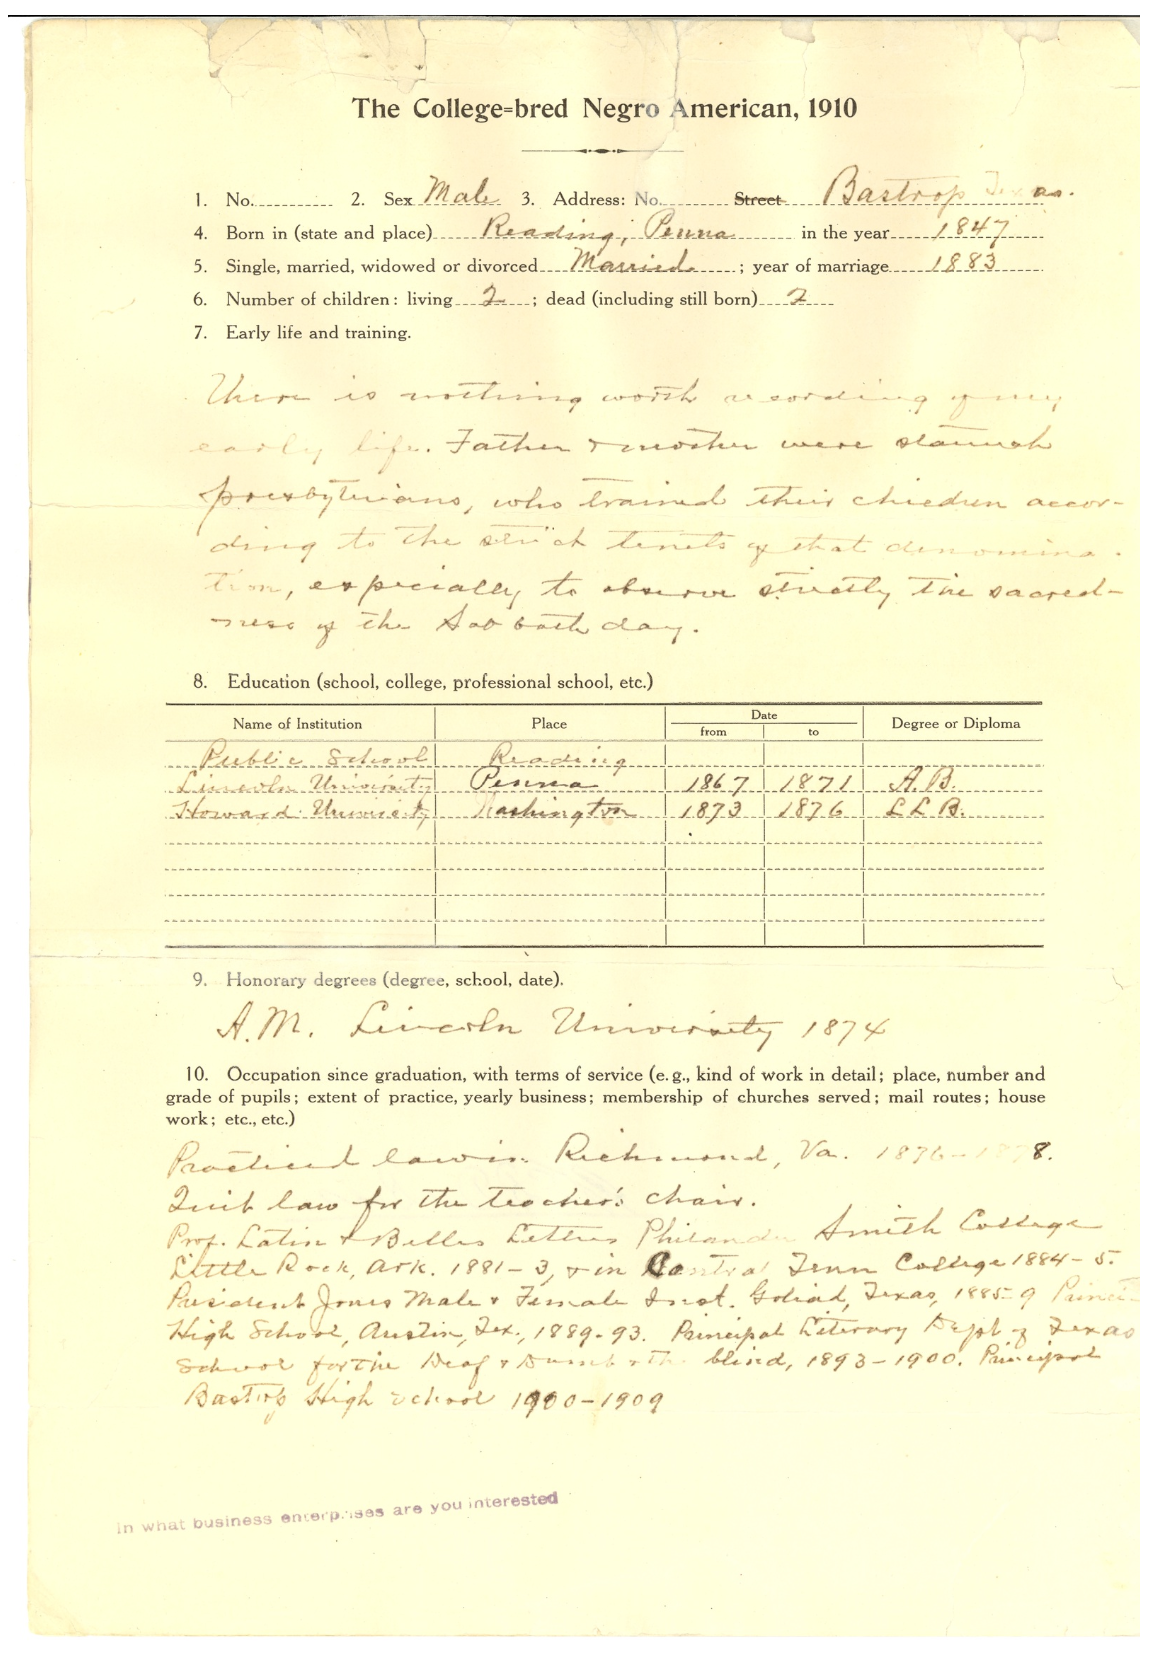 The College-bred Negro American, 1910
1. No. 2. Sex Male 3. Address: No. Street Bastrop Texas.
4. Born in (state and place) Reading, Penna in the year 1847
5. Single, married, widowed or divorced Married ; year of marriage 1883
6. Number of children: living 2 ; dead (including still born) 2
7. Early life and training.
There is nothing worth recording of my
early life. Father & mother were staunch
presbyterians, who trained their children accor-
ding to the strict tenets of that denomina-
tion, especially to observe strictly the sacred-
ness of the Sabbath day.
8. Education (school, college, professional school, etc.)
Name of Institution Place Date from to Degree or Diploma
Public School Reading
Lincoln University Penna 1867 1871 A.B.
Howard University Washington 1873 1876 LLB.
9. Honorary degrees (degree, school, date).
A.M. Lincoln University 1874
10. Occupation since graduation, with terms of service (e.g., kind of work in detail; place, number and
grade of pupils; extent of practice, yearly business; membership of churches served; mail routes; house
work; etc., etc.)
Practiced law in Richmond, Va. 1876-1878.
Quit law for the teacher's chair.
Prof. Latin & Belles Lettres Philander Smith College
Little Rock, Ark. 1881-3, & in Central Tenn College 1884-5.
President Jones Male & Female Inst. Goliad, Texas, 1885-9
High School, Austin, Tex., 1889-93. Principal Literary Dept of Texas
School for the Deaf & Dumb & the blind, 1893-1900. Principal
Bastrop High School 1900-1909
In what business enterprises are you interested